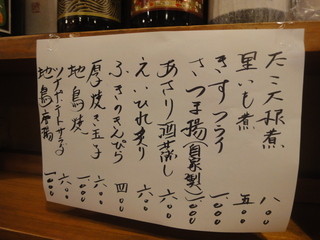 たこ大根煮 八〇〇
里いも煮 五〇〇
きすフライ 一、〇〇〇
さつま揚(自家製) 一、〇〇〇
あさり酒蒸し 六〇〇
えいひれ炙り 六〇〇
ふきのきんぴら 四〇〇
厚焼き玉子 六〇〇
地鳥焼 一、〇〇〇
ツイナポテトサラダ 六〇〇
地鳥唐揚 一、〇〇〇